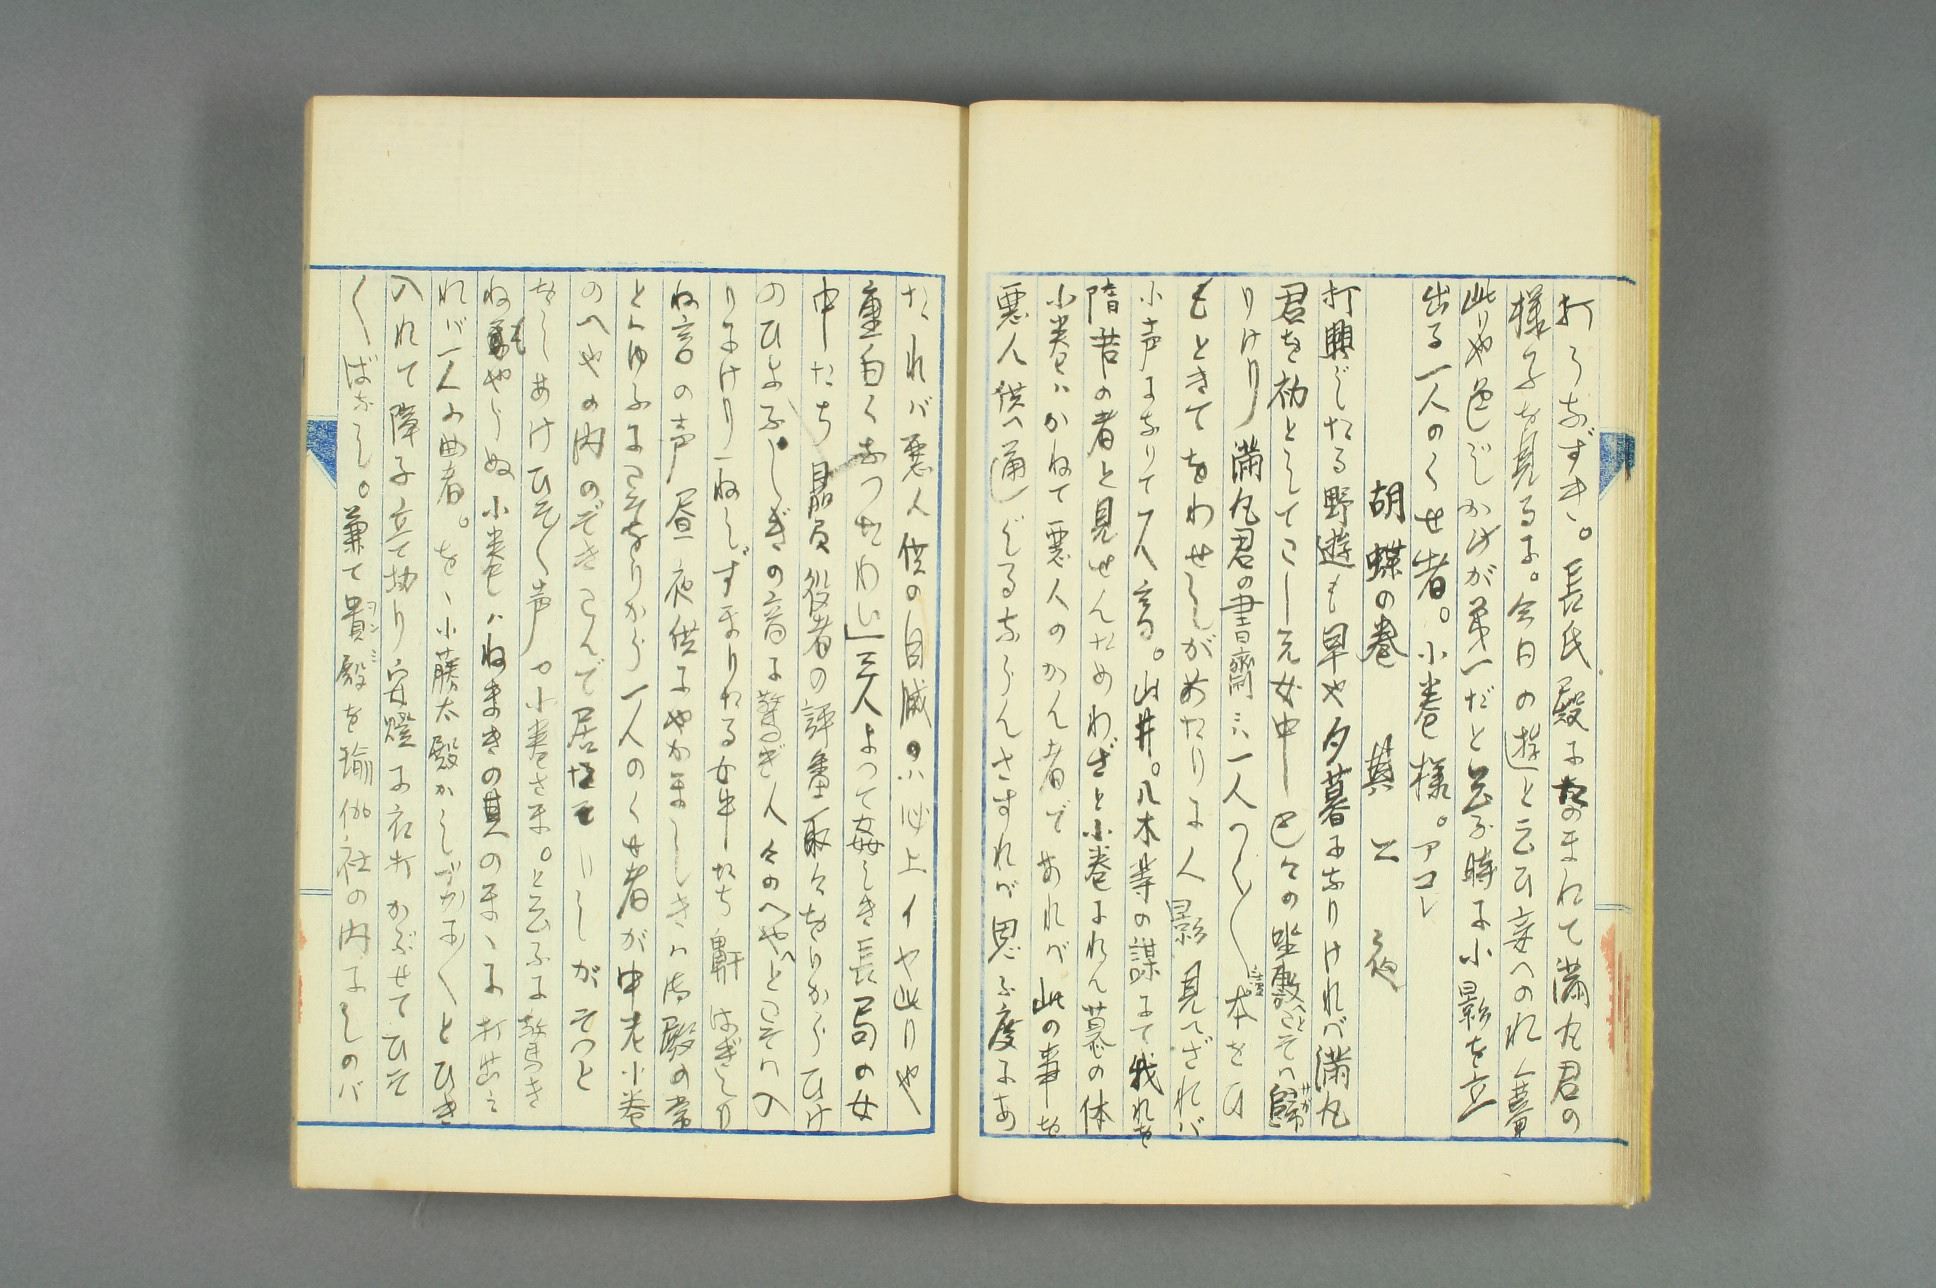 打うなずき。長氏殿にたのまれて満丸君の
様子を見るに。今日の遊と云ひ妾への礼、舞
此りや色じかけが第一だと云ふ時に小影を立
出る一人のくせ者。小巻様。アコレ
胡蝶の巻 其二 夜
打興じたる野遊も早や夕暮になりければ満丸
君を初としてこし元女中 己々の坐敷へとこそは歸
りけり 満丸君の書齋には一人つく〲本をひ
もときてをわせしがあたりに人影見へざれば
小声になりて一人言。山井。八木等の謀にて我れを
陪君の者と見せんためわざと小巻にれん慕の体
小巻はかねて悪人のかん者であれば此の事を
悪人供へ通じるならんさすれば思ふ度にあ
たれば悪人供の自滅のは必上イヤ此りや
重白くなつたわい」三人よつて姦しき長局の女
中たち 贔屓役者の評畫取々なりから ひけ
のひよふしぎの音に驚ぎ人々のへやへとこそは入
りにけり ねしずまりたる女中たち 鼾 はぎしり
ね言の声 昼夜供にやかましきは御殿の常
とゆふにこそなりから 一人のくせ者が中老小巻
のへやの内のぞきこんで居たて いしが そつと
をしあけひそ〱声 や小巻さま。と云ふに驚き
ねもやらぬ小巻はねまきの其のまゝに打出
れば一人の曲者。を、小藤太殿かしづかに〱とひき
入れて障子立て切り安燈に衣打かぶせてひそ
〱ばなし。兼て貴殿を瑜伽社の内にしのバ